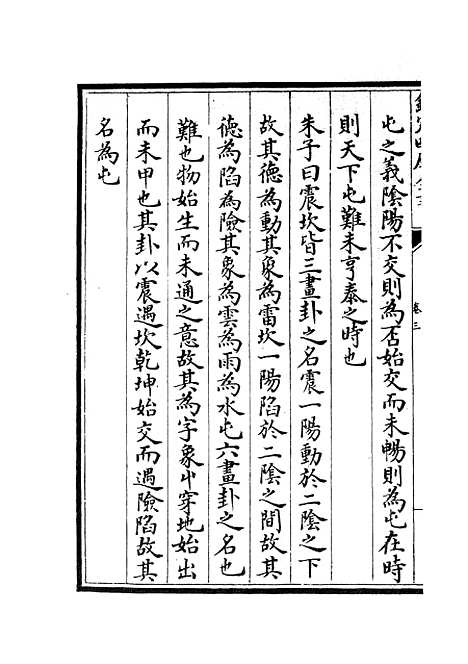 卷三
屯之義陰陽不交則為否始交而未暢則為屯在時
則天下屯難未亨泰之時也
朱子曰震坎皆三畫卦之名震一陽動於二陰之下
故其德為動其象為雷坎一陽陷於二陰之間故其
德為陷為險其象為雲為雨為水屯六畫卦之名也
難也物始生而未通之意故其為字象屮穿地始出
而未甲也其卦以震遇坎乾坤始交而遇險陷故其
名為屯